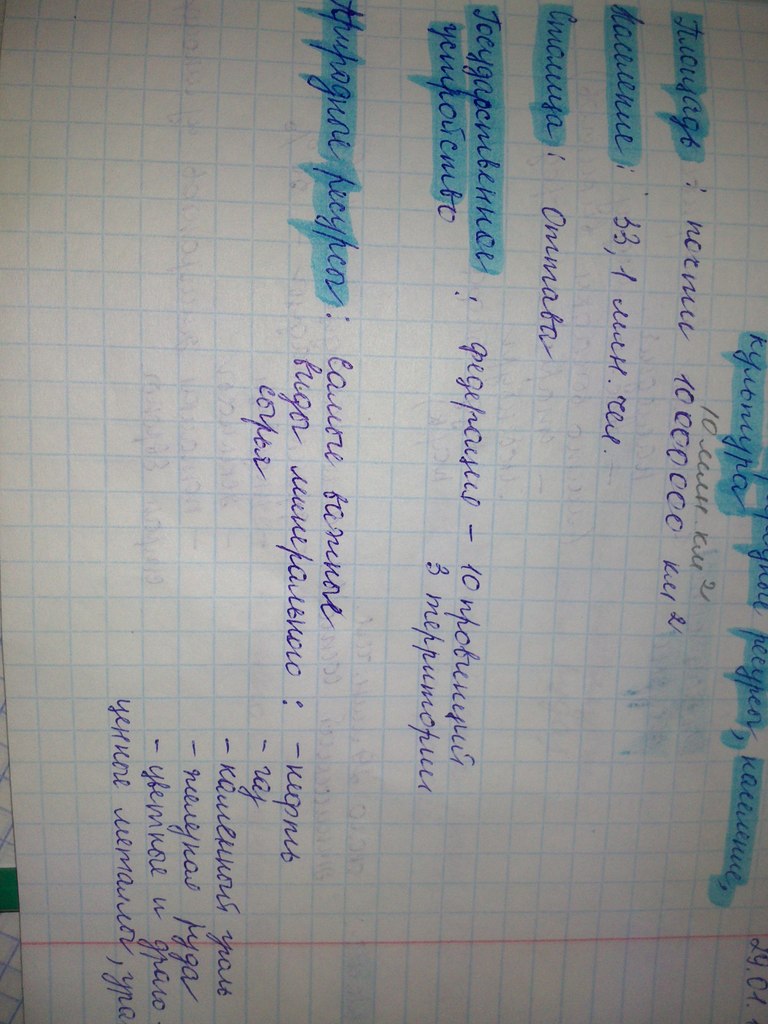 29.01.1
природные ресурсы, население,
культура
10 млн. км2
Площадь : почти 10000000 км2
Население : 33,1 млн. чел.
Столица : Оттава
Государственное : федерация - 10 провинций
устройство 3 территории
Природные ресурсы : самые важные
виды минерального : - нефть
сырья - газ
- каменный уголь
- железная руда
- цветные и драго-
ценные металлы, ура